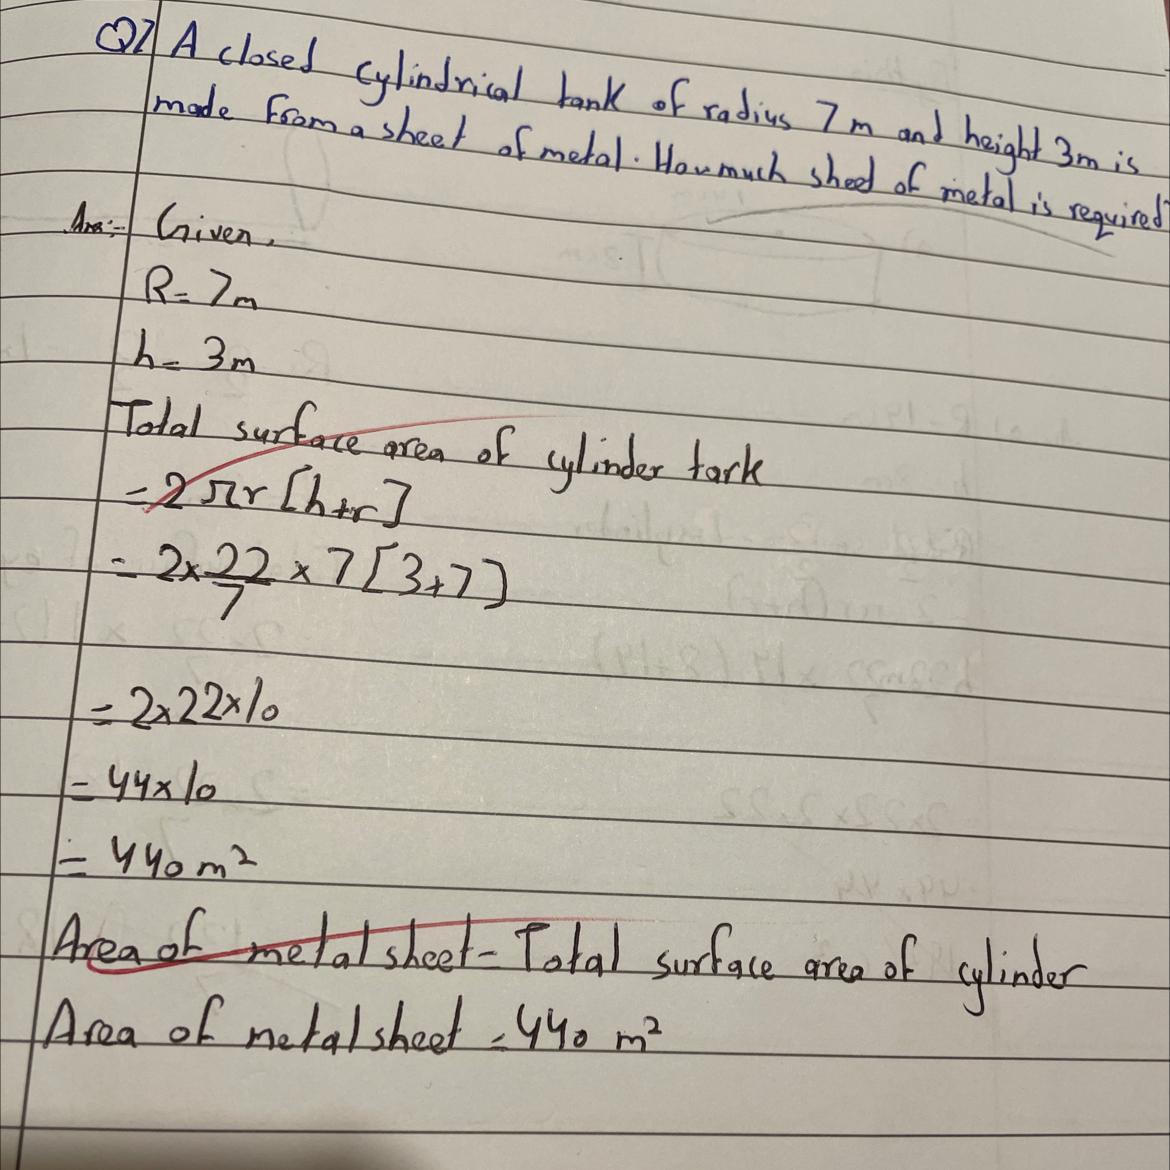 Q7 A closed cylindrical tank of radius 7m and height 3m is
made from a sheet of metal. How much sheet of metal is required
Ans:- Given,
R = 7m
h = 3m
Total surface area of cylinder tark
= 2πr [h+r]
= 2×22/7 × 7 [3+7]
= 2×22×10
= 44×10
= 440 m²
Area of metal sheet = Total surface area of cylinder
Area of metal sheet = 440 m²